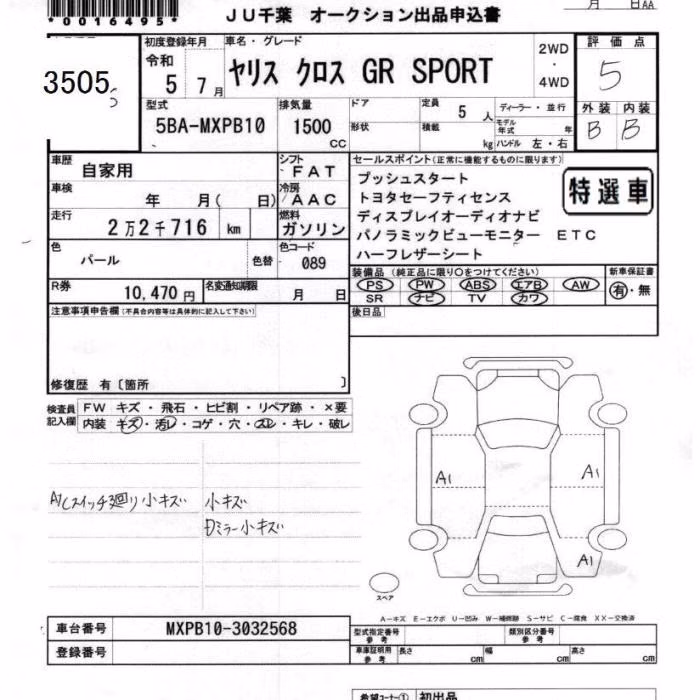 *0016495*
JU千葉 オークション出品申込書
月 日AA
3505
初度登録年月 車名・グレード
令和 5 7月 ヤリス クロス GR SPORT
2WD ・ 4WD
評価点
5
外装 内装
B B
型式 排気量 ドア 定員 5人 ディーラー・並行
5BA-MXPB10 1500 CC
形状 積載 kg モデル年式 年 ハンドル 左・右
車歴 自家用
シフト FAT
車検 年 月( 日)
冷房 AAC
走行 2万2千716 km
燃料 ガソリン
色 パール 色替
色コード 089
R券 10,470円 名変通知期限 月 日
セールスポイント(正常に機能するものに限ります)
プッシュスタート
トヨタセーフティセンス
ディスプレイオーディオナビ
パノラミックビューモニター ETC
ハーフレザーシート
特選車
装備品 (純正品に限り○をつけてください) 新車保証書
PS PW ABS エアB AW 有・無
SR ナビ TV カワ
後日品
注意事項申告欄(不具合内容等は具体的に記入して下さい)
修復歴 有〔箇所 〕
検査員記入欄
FW キズ・飛石・ヒビ割・リペア跡・×要
内装 キズ・汚レ・コゲ・穴・スレ・キレ・破レ
小キズ 小キズ
ミラー小キズ
A1 A1
A1
スペア
A-キズ E-エクボ U-凹み W-補修跡 S-サビ C-腐食 XX-交換済
車台番号 MXPB10-3032568
登録番号
型式指定番号 参考 類別区分番号 参考
車庫証明用 参考 長さ cm 幅 cm 高さ cm
希望コーナー① 初出品